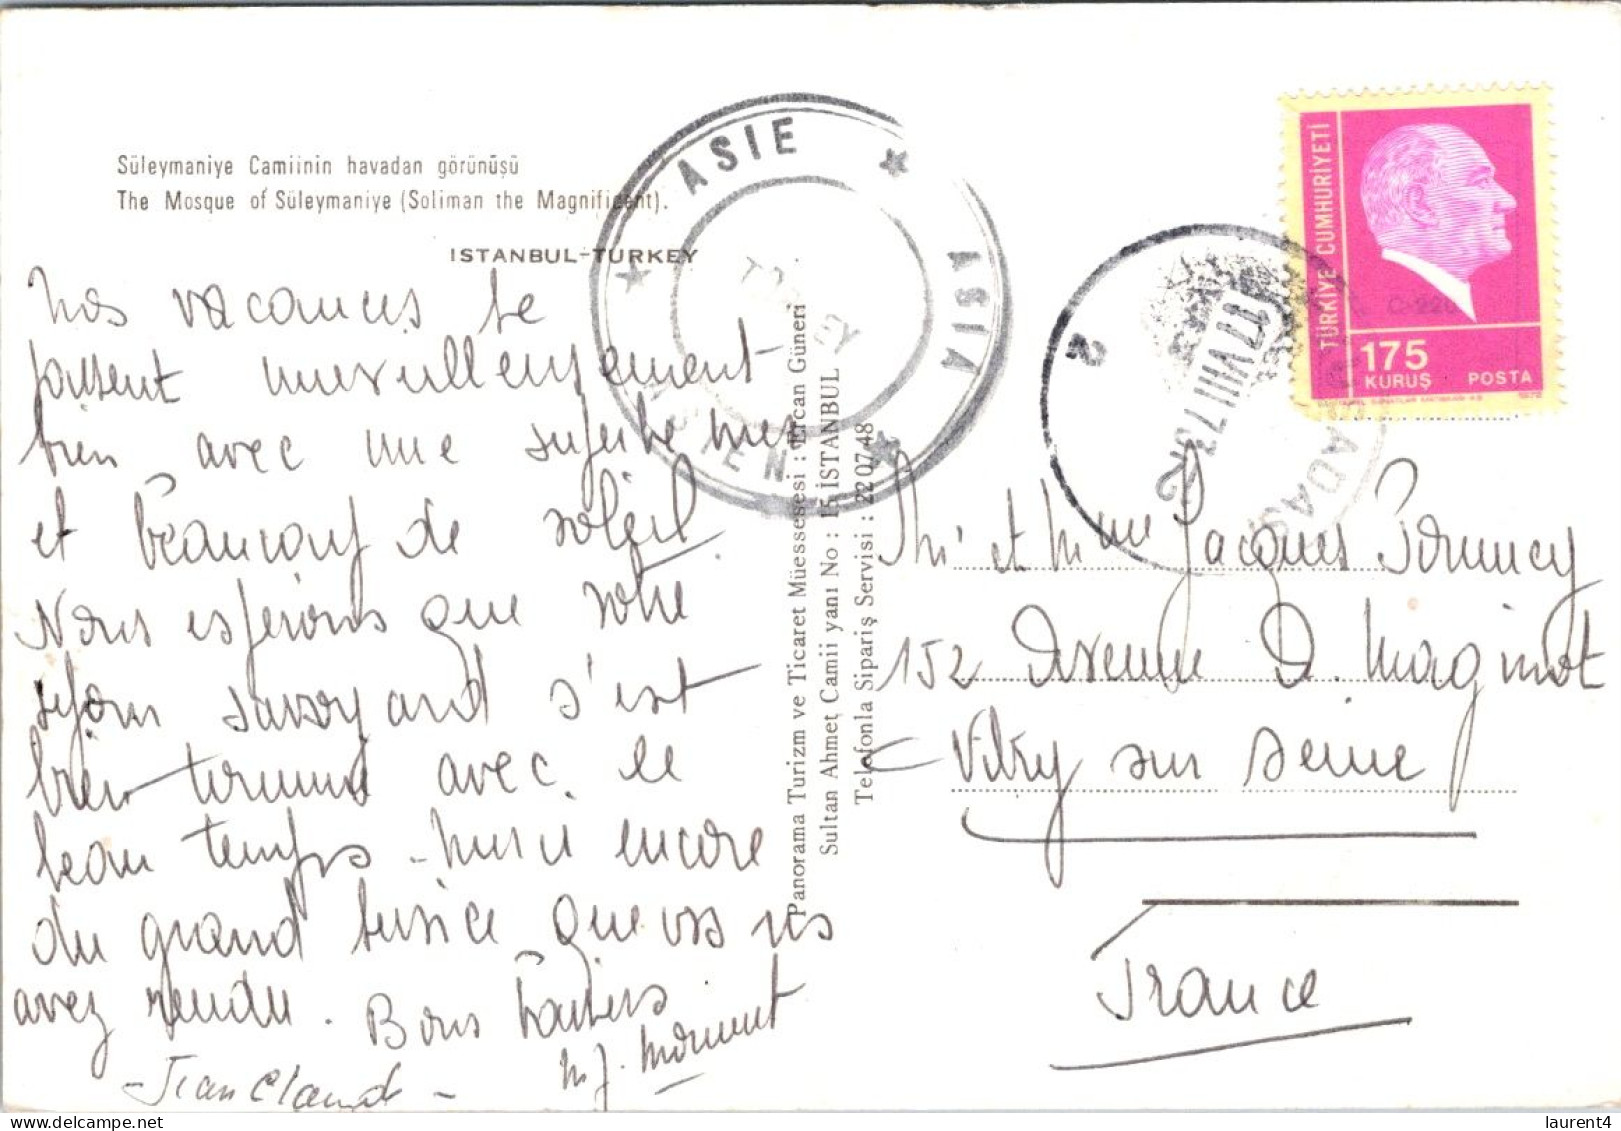 Süleymaniye Camiinin havadan görünüşü
The Mosque of Süleymaniye (Soliman the Magnificent).
ISTANBUL-TURKEY
Nos vacances se
passent merveilleusement
bien avec une superbe mer
et beaucoup de soleil.
Nous espérons que votre
séjour savoyard s'est
bien terminé avec le
beau temps - Merci encore
du grand service que vous ns
avez rendu. Bons baisers
- Jean Claude - M J.
Panorama Turizm ve Ticaret Müessesesi : Ercan Güneri
Sultan Ahmet Camii yanı No : 15 İSTANBUL
Telefonla Sipariş Servisi : 22 07 48
ASIE
ASIA
ASIEN
2
TÜRKİYE CUMHURİYETİ
175
KURUŞ POSTA
Mr et Mme Jacques
152 Avenue D. Maginot
Vitry sur Seine
France
laurent4